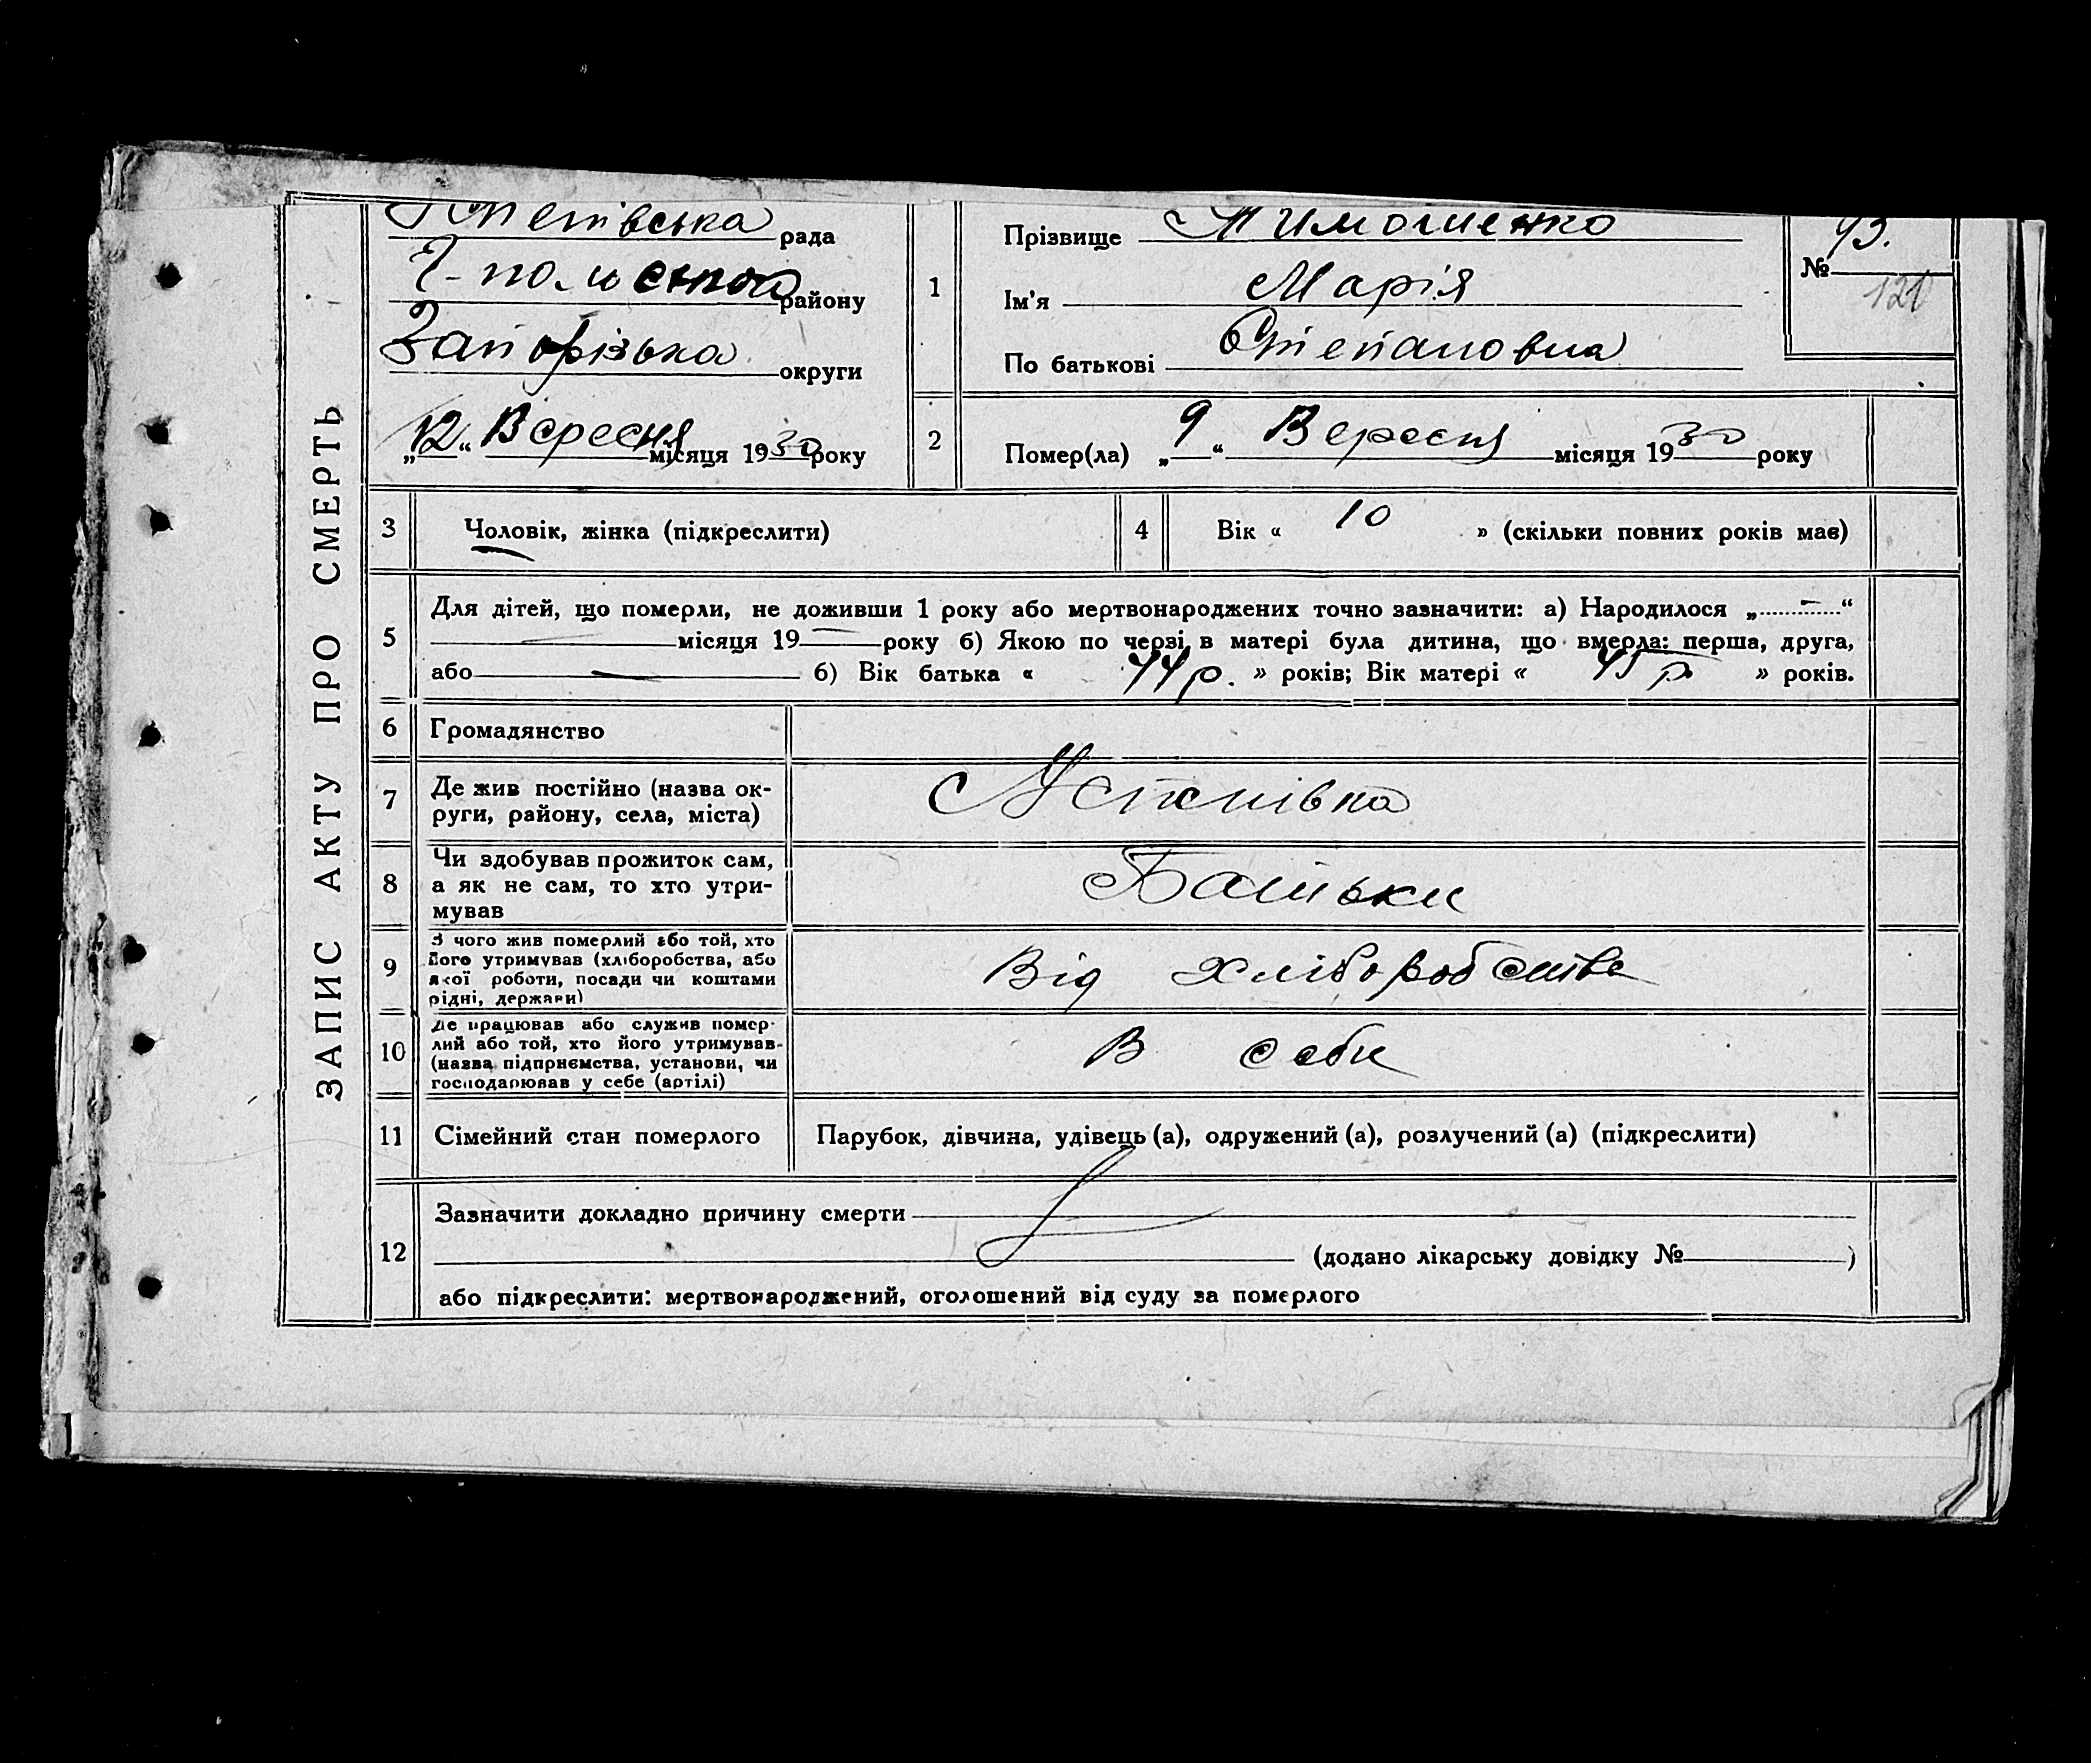 ЗАПИС АКТУ ПРО СМЕРТЬ
рада
району
Запорізька округи
„12“ Вересня місяця 1930 року
1
Прізвище Тимошенко
Ім'я Марія
По батькові Степановна
№ 93.
121
2
Помер(ла) „9“ Вересня місяця 1930 року
3 Чоловік, жінка (підкреслити)
4 Вік « 10 » (скільки повних років має)
5
Для дітей, що померли, не доживши 1 року або мертвонароджених точно зазначити: а) Народилося „ “
місяця 19 року б) Якою по черзі в матері була дитина, що вмерла: перша, друга,
або б) Вік батька « 44 р. » років; Вік матері « 45 р. » років.
6 Громадянство
7 Де жив постійно (назва ок-
руги, району, села, міста)
8
Чи здобував прожиток сам,
а як не сам, то хто утри-
мував
Батьки
9
З чого жив померлий або той, хто
його утримував (хліборобства, або
якої роботи, посади чи коштами
рідні, держави)
Від хліборобства
10
Де працював або служив помер-
лий або той, хто його утримував-
(назва підприємства, установи, чи
господарював у себе (артілі)
В себе
11 Сімейний стан померлого
Парубок, дівчина, удівець (а), одружений (а), розлучений (а) (підкреслити)
12
Зазначити докладно причину смерти
(додано лікарську довідку № )
або підкреслити: мертвонароджений, оголошений від суду за померлого